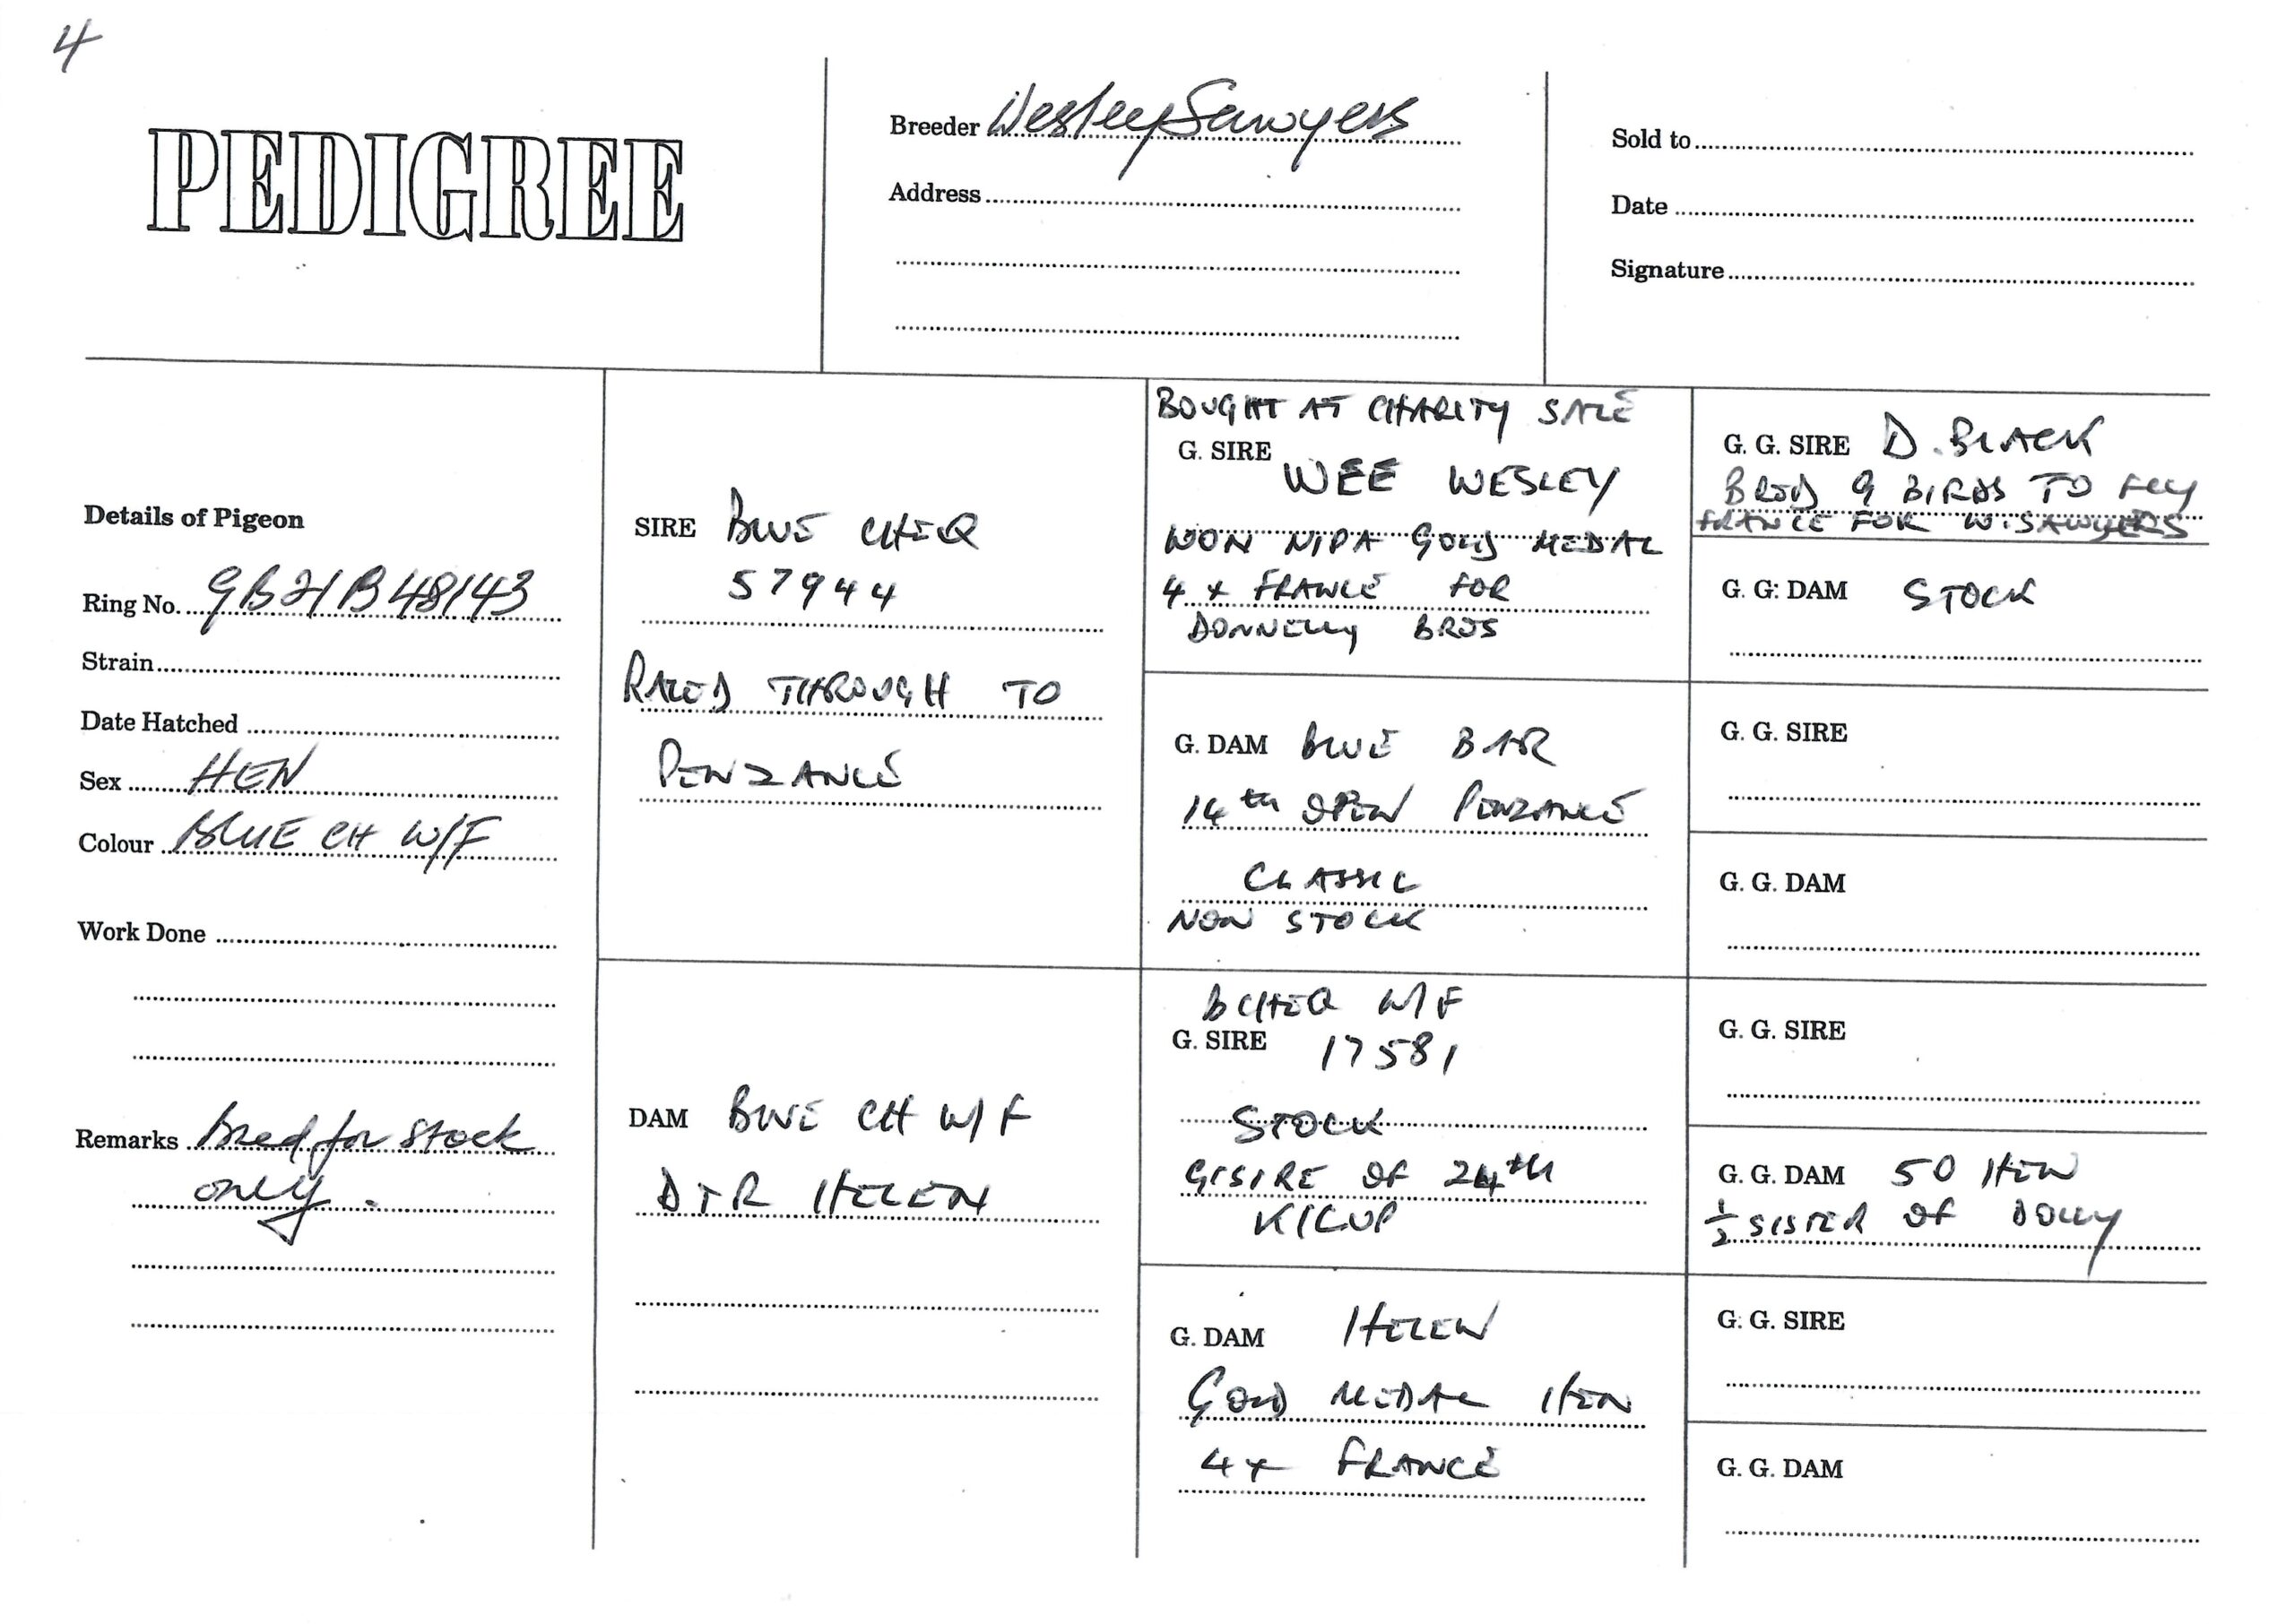 4
PEDIGREE
Breeder Wesley Sawyers
Address
Sold to
Date
Signature
Details of Pigeon
Ring No. GB21B48143
Strain
Date Hatched
Sex HEN
Colour BLUE CH W/F
Work Done
Remarks bred for stock
only.
SIRE BLUE CHEQ
57944
RACED THROUGH TO
PENZANCE
DAM BLUE CH W/F
DTR HELEN
BOUGHT AT CHARITY SALE
G. SIRE WEE WESLEY
WON NIPA GOLD MEDAL
4 x FRANCE FOR
DONNELLY BROS
G. DAM BLUE BAR
14th OPEN PENZANCE
CLASSIC
NOW STOCK
B CHEQ W/F
G. SIRE 17581
STOCK
G/SIRE OF 24th
KICUP
G. DAM HELEN
GOLD MEDAL HEN
4x FRANCE
G. G. SIRE D. BLACK
BRED 9 BIRDS TO FLY
FRANCE FOR W. SAWYERS
G. G. DAM STOCK
G. G. SIRE
G. G. DAM
G. G. SIRE
G. G. DAM 50 HEN
½ SISTER OF DOLLY
G. G. SIRE
G. G. DAM